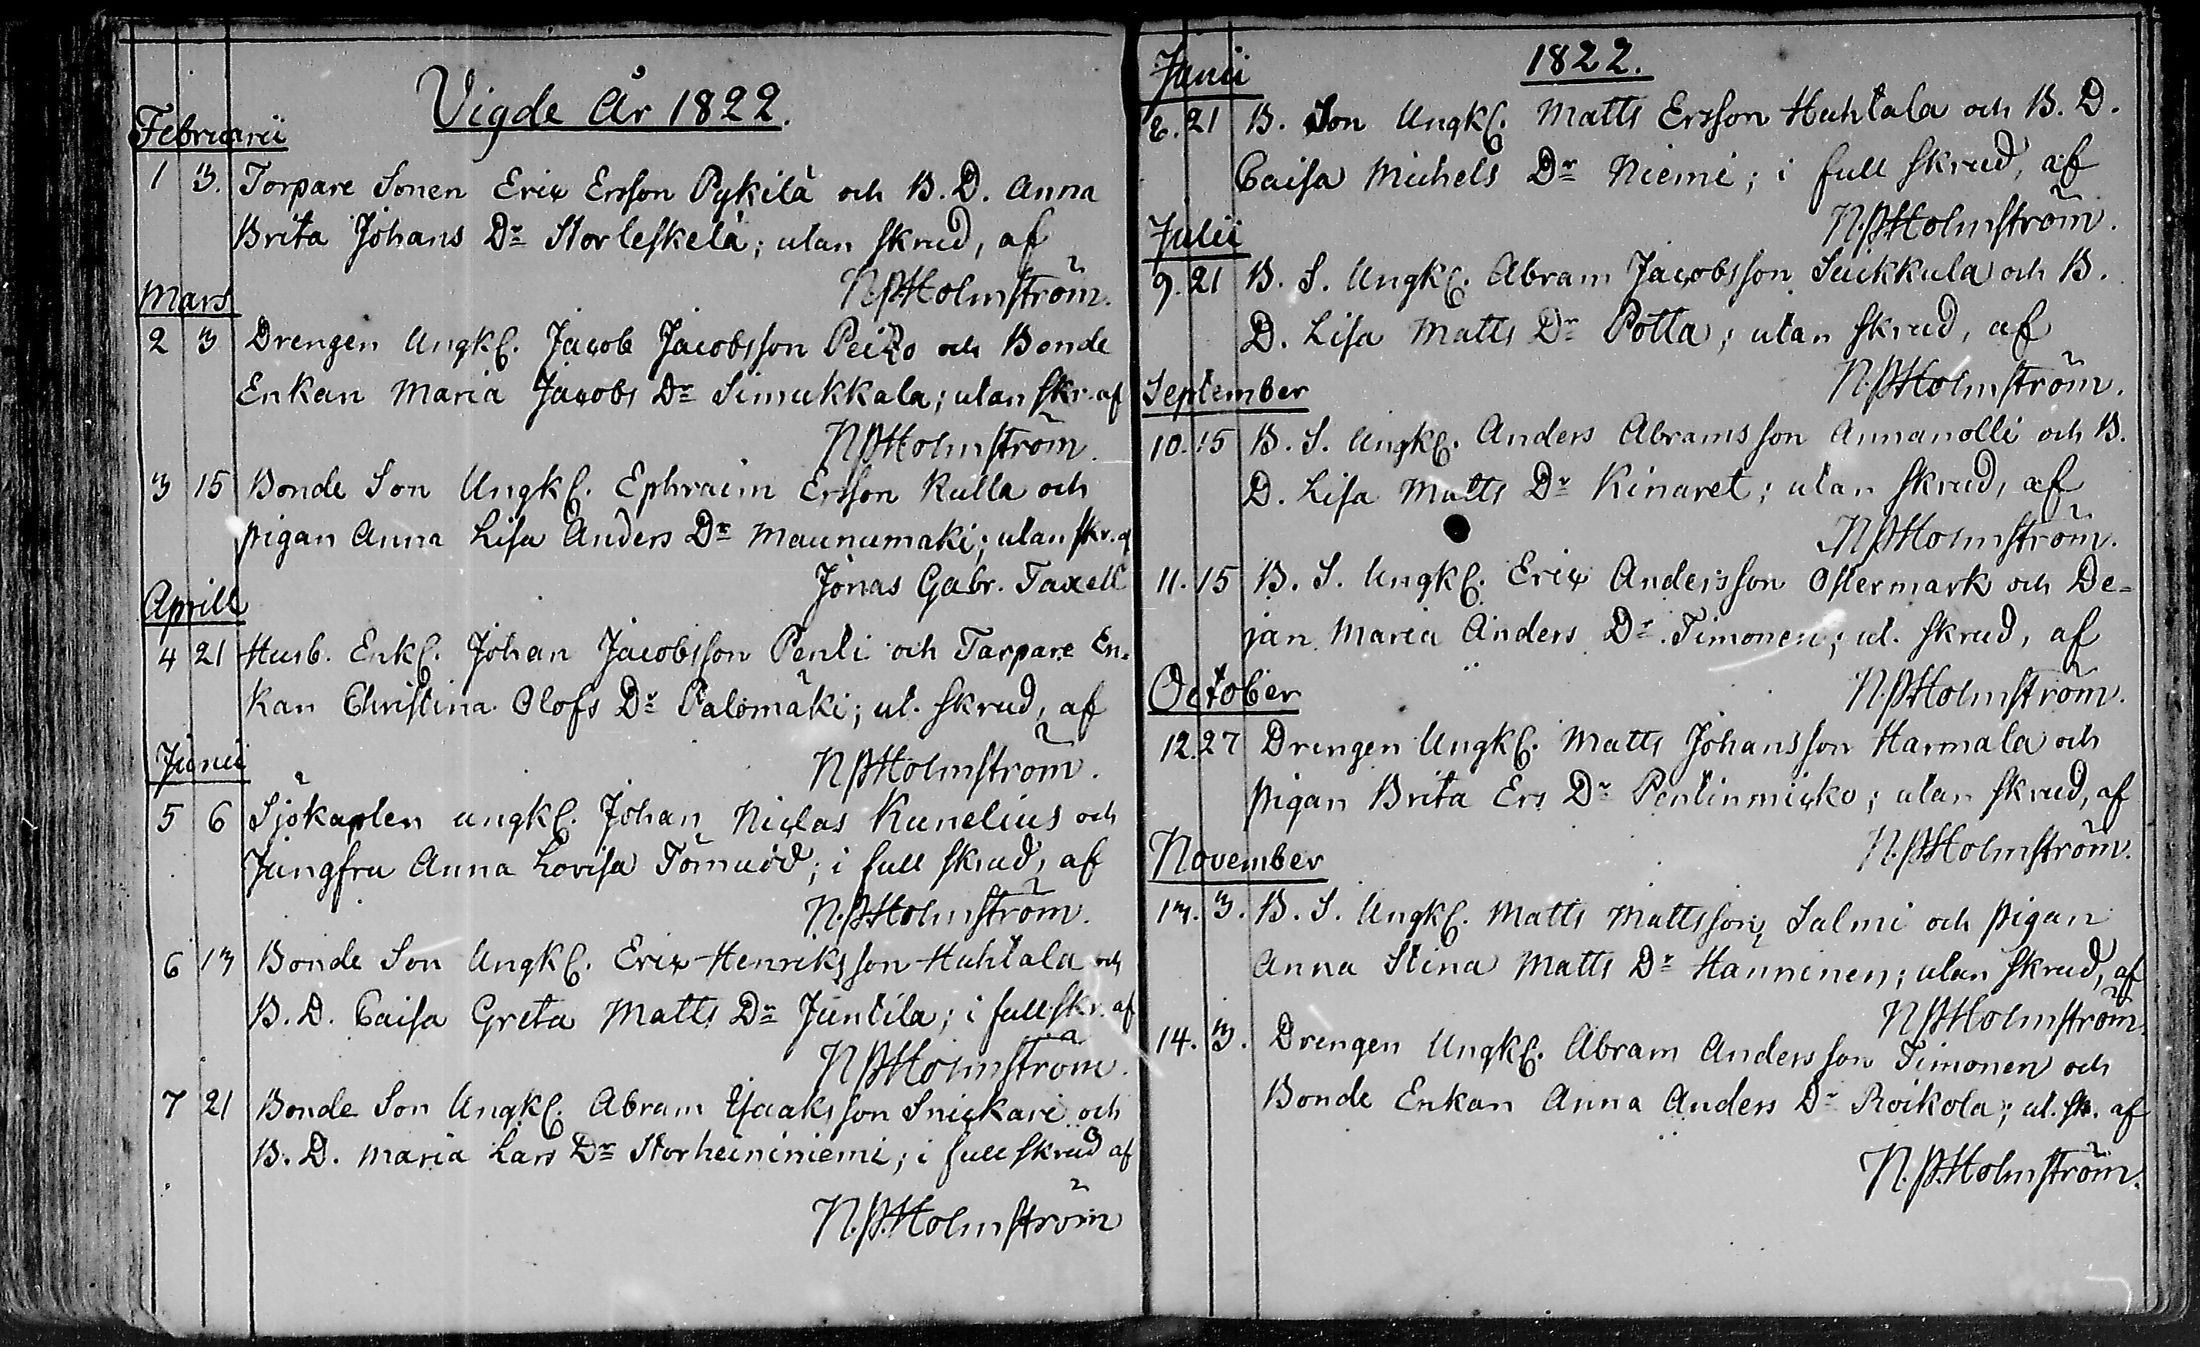 Vigde År 1822.
Februarii
1 3. Torpare Sonen Eric Ersson Pykilä och B. D. Anna
Brita Johans Dr Storleskelä; utan skrud, af
N. P. Holmström.
Mars
2 3 Drengen Ungk. Jacob Jacobsson Peizo och Bonde
Enkan Maria Jacobs Dr Simukkala; utan skr. af
N P Holmström.
3 15 Bonde Son Ungk. Ephraim Ersson Kulla och
pigan Anna Lisa Anders Dr Maunumäki; utan skr. af
Jonas Gabr. Taxell
Aprill
4 21 Husb. Enkl. Johan Jacobsson Penti och Torpare En-
kan Christina Olofs Dr Palomäki; ut. skrud, af
N P Holmström.
Junii
5 6 Sjökapten ungk. Johan Niclas Kunelius och
Jungfru Anna Lovisa Törnudd; i full skrud, af
N. P. Holmström.
6 13 Bonde Son Ungk. Eric Henriksson Huhtala och
B. D. Caisa Greta Matts Dr Juntila; i full skr. af
N P Holmström.
7 21 Bonde Son Ungk. Abram Isaaksson Snickare och
B. D. Maria Lars Dr Storheininiemi; i full skrud af
N. P. Holmström
1822.
Junii
8. 21 B. Son Ungk. Matts Ersson Huhtala och B. D.
Caisa Michels Dr Niemi; i full skrud, af
N. P. Holmström.
Julii
9. 21 B. S. Ungk. Abram Jacobsson Suikkula och B.
D. Lisa Matts Dr Potta; utan skrud, af
N. P. Holmström.
September
10. 15 B. S. Ungk. Anders Abramsson Annanolli och B.
D. Lisa Matts Dr Kinaret; utan skrud, af
N P Holmström.
11. 15 B. S. Ungk. Eric Andersson Ostermark och De-
jan Maria Anders Dr Timonen; ut. skrud, af
N. P. Holmström.
October
12. 27 Drengen Ungk. Matts Johansson Harmala och
pigan Brita Ers Dr Pentinmicko; utan skrud, af
N. P. Holmström.
November
13. 3. B. S. Ungk. Matts Mattsson Salmi och pigan
Anna Stina Matts Dr Hanninen; utan skrud, af
N P Holmström.
14. 3. Drengen Ungk. Abram Andersson Timonen och
Bonde Enkan Anna Anders Dr Röikola; ut. sk. af
N. P. Holmström.